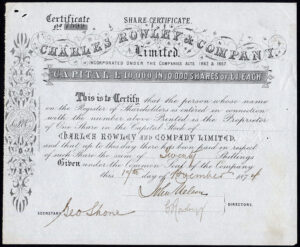 Certificate SHARE CERTIFICATE.
No
CHARLES ROWLEY & COMPANY,
Limited.
INCORPORATED UNDER THE COMPANIES ACTS 1862 & 1867.
CAPITAL £10,000 IN 10,000 SHARES OF £1 EACH.
This is to Certify that the person whose name
on the Register of Shareholders is entered in connection
with the number above Printed is the Proprietor
of One Share in the Capital Stock of
CHARLES ROWLEY AND COMPANY LIMITED.
and that up to this day there has been paid in respect
of such Share the sum of Twenty Shillings
Given under the Common Seal of the Company
this 19th day of November 1874
DIRECTORS.
SECRETARY Geo Shone